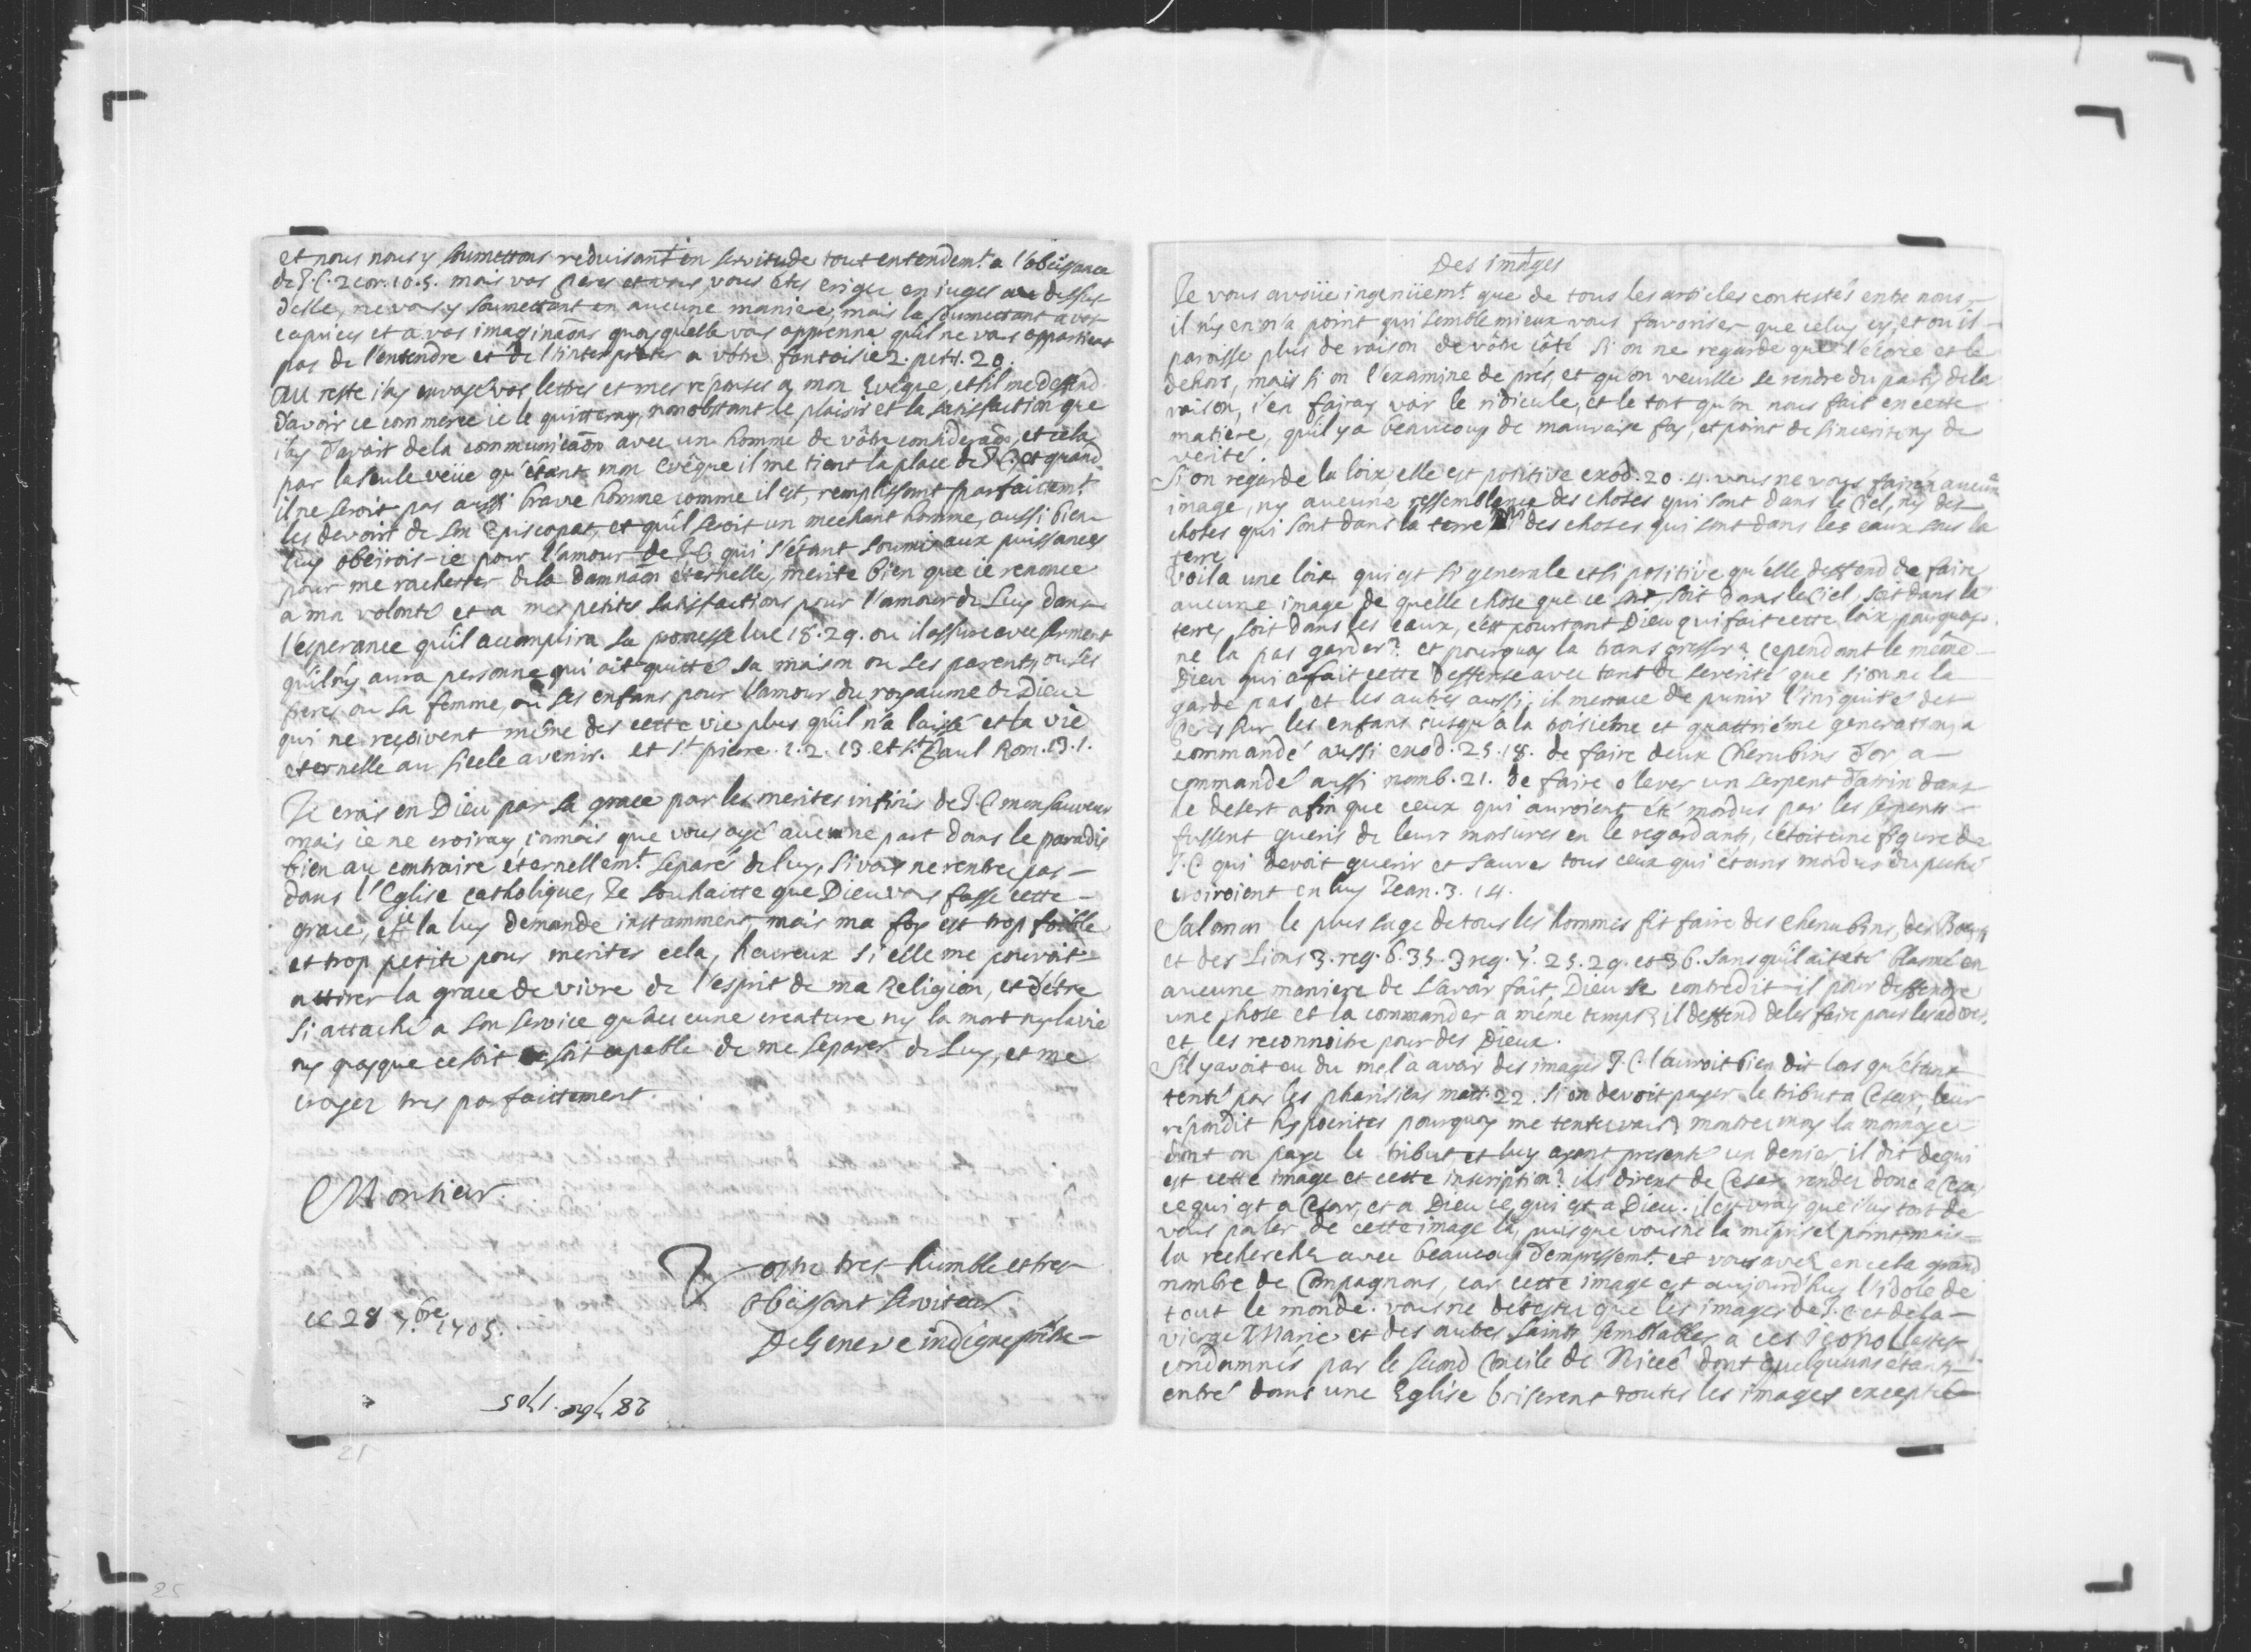 et nous nous y soumettons reduisant en servitude tout entendemt. a l'obeissance
de J.C. 2 cor. 10. 5. mais vos peres et vous, vous êtes erigez en juges au dessus
d'elle, ne vous y soumettant en aucune maniere, mais la soumettant a vos
caprices et a vos imaginãons quoyqu'elle vous apprenne qu'il ne vous appartient
pas de l'entendre et de l'interpreter a vôtre fantaisie 2. petr. 20.
Au reste i'ay envoyé vos lettres et mes réponses a mon Evêque, et s'il me deffend
d'avoir ce commerce ie le quitteray, nonobstant le plaisir et la satisfaction que
i'ay d'avoir de la communicãon avec un homme de vôtre considerãon, et cela
par la seule veüe qu'étant mon Evêque il me tient la place de J.C. et quand
il ne seroit pas aussi brave homme comme il est, remplissant parfaitemt.
les devoirs de son Episcopat, et qu'il seroit un mechant homme, aussi bien
luy obeirois-ie pour l'amour de J.C. qui s'étant soumis aux puissances
pour me rachetter de la damnaõn éternelle, merite bien que ie renonce
a ma volonté et a mes petites satisfactions pour l'amour de Luy dans
l'esperance qu'il accomplira sa promesse luc 18. 29. ou il assure avec serment
qu'il n'y aura personne qui ait quitté sa maison ou ses parents, ou ses
freres ou sa femme, ou ses enfans pour l'amour du royaume de Dieu
qui ne reçoivent même des cette vie plus qu'il n'a laissé et la vie
éternelle au siecle avenir. et St. pierre. 1. 2. 13. et St. Paul Rom. 13. 1.
Je crois en Dieu par sa grace par les merites infinis de J.C. mon sauveur
mais ie ne croiray iamais que vous ayé aucune part dans le paradis
bien au contraire éternellemt. separé de luy, si vous ne rentrez pas
dans l'Eglise catholique, Je souhaitte que Dieu vous fasse cette
grace, et ie la luy demande instamment, mais ma foy est trop foible
et trop petite pour meriter cela, heureux si elle me pouvoit
attirer la grace de vivre de l'esprit de ma Religion, et d'être
si attaché a son service qu'aucune creature ny la mort ny la vie
ny quoyque ce soit soit capable de me separer de Luy, et me
croyez tres parfaittement.
Monsieur
Vostre tres humble et tres
obeissant serviteur
DeGeneve indigne prêtre
ce 28 7.bre 1705.
28 7bre. 1705
21
25
Des images
Je vous avoüe ingenüemt. que de tous les articles contestés entre nous,
il n'y en n'a point qui semble mieux vous favoriser que celuy cy, et ou il
paroisse plus de raison de vôtre côté si on ne regarde que l'écorce et le
dehors, mais si on l'examine de prés, et qu'on veuille se rendre du party de la
raison, i'en fairay voir le ridicule, et le tort qu'on nous fait en cette
matiere, qu'il y a beaucoup de mauvaise foy, et point de sincerité ny de
verité.
Si on regarde la loix, elle est positive exod. 20. 4. vous ne vous fairéz aucune
image, ny aucune ressemblance des choses qui sont dans le Ciel, ny des
choses qui sont dans la terre ny des choses qui sont dans les eaux sous la
terre.
voila une loix qui est si generale et si positive qu'elle deffend de faire
aucune image de quelle chose que ce soit soit dans le Ciel, soit dans la
terre, soit dans les eaux, c'est pourtant Dieu qui fait cette loix, pourquoy
ne la pas garder? et pourquoy la transgresser? cependant le même
Dieu qui a fait cette deffense avec tant de severité que si on ne la
garde pas, et les autres aussi, il menace de punir l'iniquité des
Peres sur les enfans iusqu'a la troisieme et quattriéme generation, a
commandé aussi exod. 25. 18. de faire deux Cherubins d'or a
commandé aussi nomb. 21. de faire elever un serpent d'airin dans
le desert afin que ceux qui auroient été mordus par les serpents
fussent gueris de leurs morsures en le regardant, c'étoit une figure de
J.C. qui devoit guerir et sauver tous ceux qui étans mordus du peché
croiroient en luy Jean. 3. 14.
Salomon le plus sage de tous les hommes fit faire des cherubins, des Boeufs
et des Lions 3. reg. 6. 35. 3 reg. 7. 25. 29. et 36. sans qu'il ait été blasmé en
aucune maniere de l'avoir fait, Dieu se contredit-il pour deffendre
une chose et la commander a même temps? il deffend de les faire pour les adorer,
et les reconnoitre pour des Dieux.
S'il y avoit eu du mal a avoir des images J.C. l'auroit bien dit lors qu'étant
tenté par les pharisiens matt. 22. si on devoit payer le tribut a Cesar, leur
répondit hypocrites pourquoy me tentez vous? montrez moy la monnoye
dont on paye le tribut et luy ayant presenté un denier, il dit de qui
est cette image et cette inscription? ils dirent de Cesar, rendez donc a Cesar
ce qui est a Cesar, et a Dieu ce qui est a Dieu. il est vray que i'ay tort de
vous parler de cette image là, puisque vous ne la méprisez point, mais
la recherchez avec beaucoup d'empressemt. et vous avez en cela grand
nombre de Compagnons, car cette image est aujourd'huy l'idole de
tout le monde. vous ne detestez que les images de J.C. et de la
vierge Marie et des autres saints semblables a ces
condamnés par le second Concile de Nicée dont quelqu'uns étant
entré dans une Eglise briserent toutes les images excepté